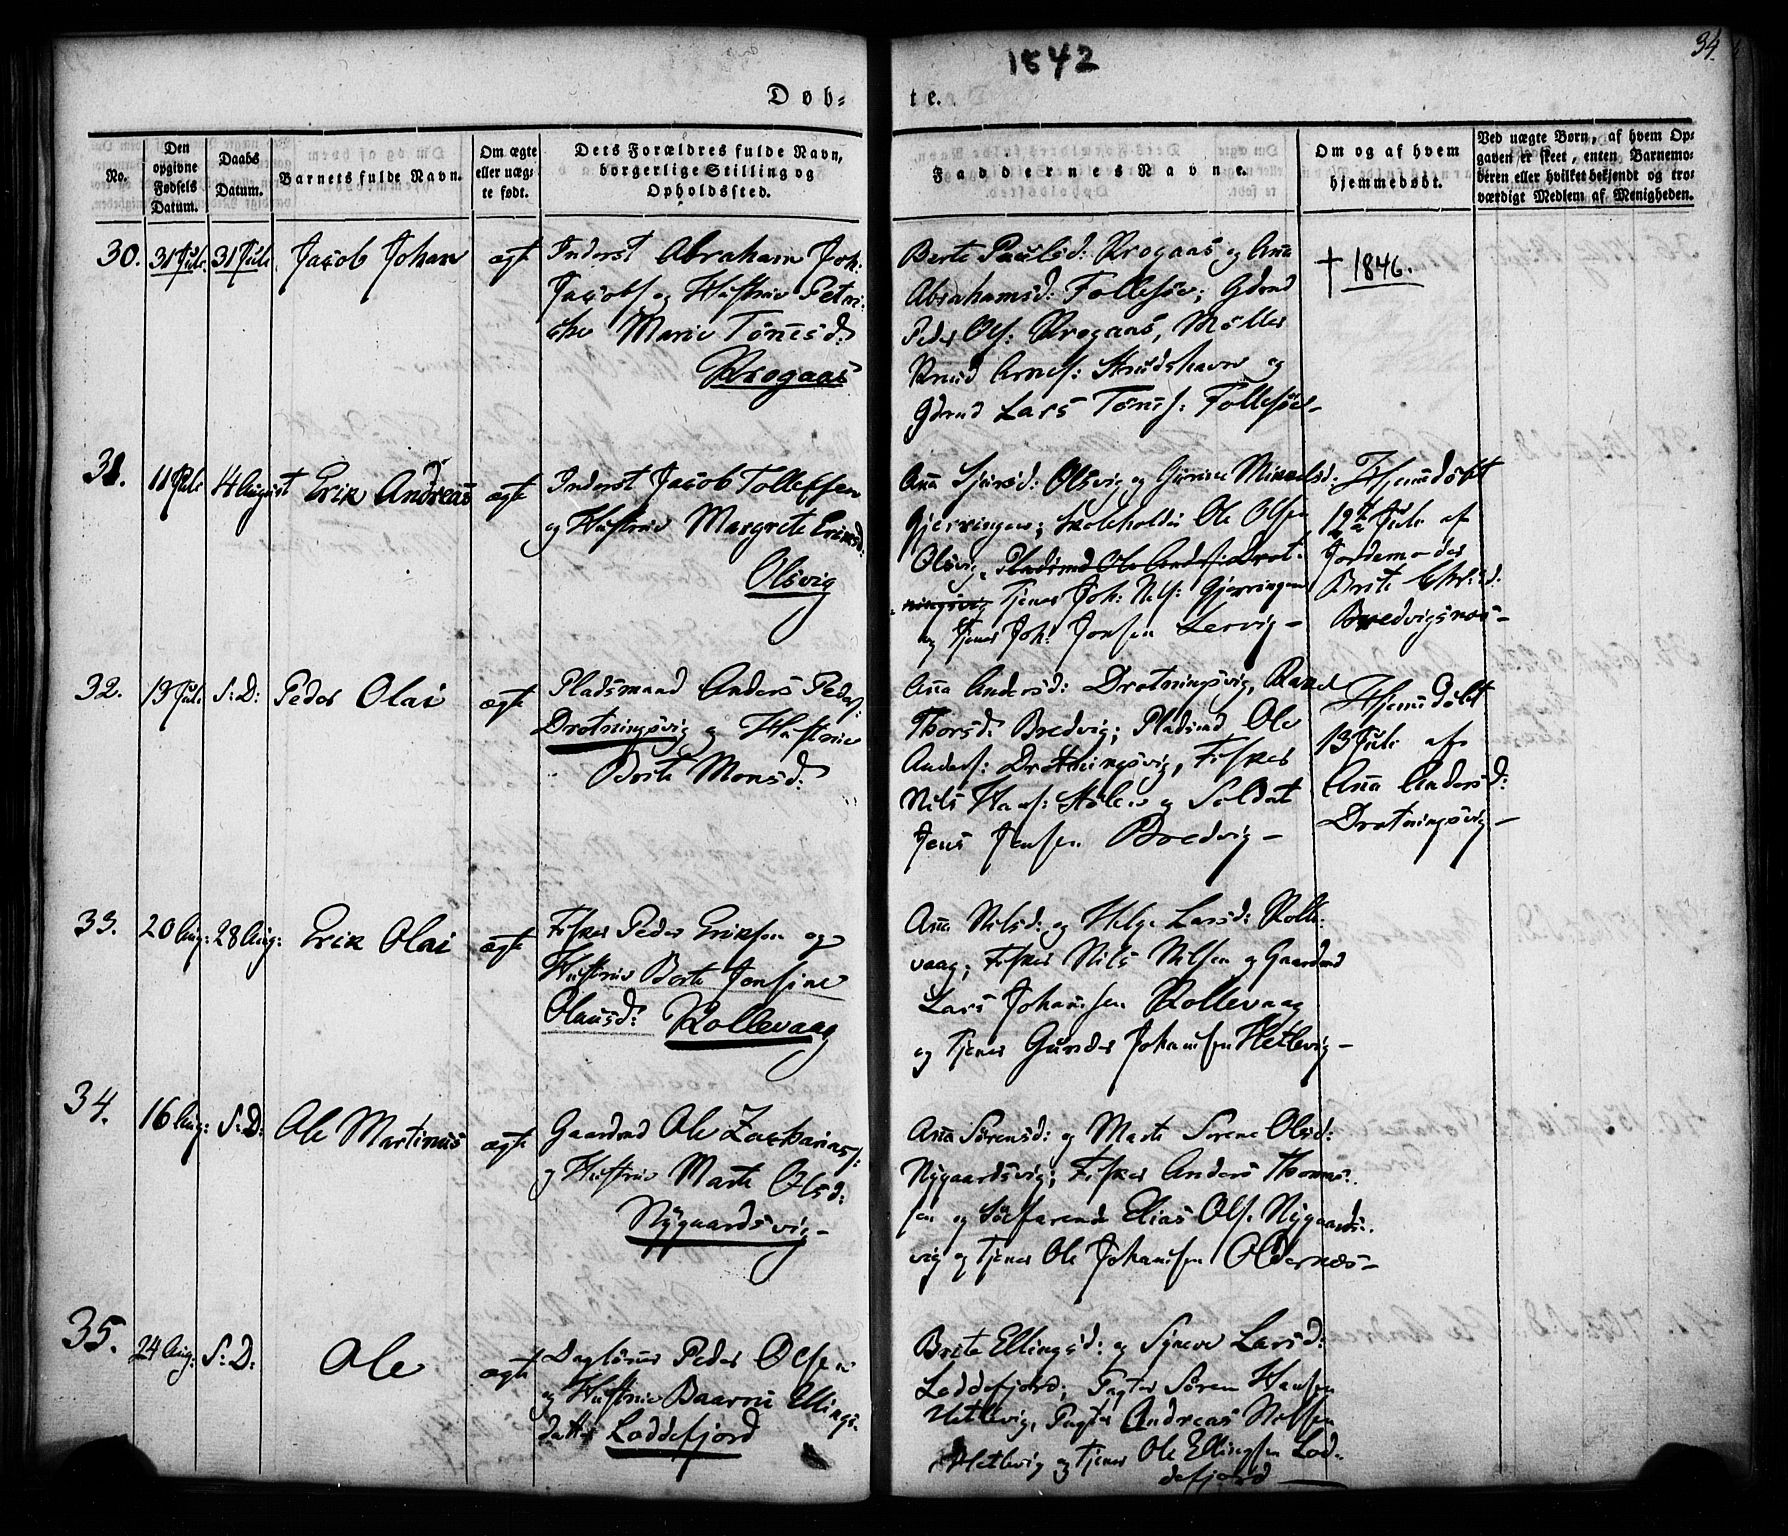 1842
34.
Døb-
te.
No.
Den opgivne Fødsels Datum.
Daabs Datum.
Barnets fulde Navn.
Om ægte eller uægte født.
Dets Forældres fulde Navn, borgerlige Stilling og Opholdssted.
Faddernes Navne.
Om og af hvem hjemmedøbt.
Ved uægte Børn, af hvem Opgaven er skeet, enten Barnemoderen eller hvilket bekjendt og troværdigt Medlem af Menigheden.
30. 31 Juli 31 Juli Jacob Johan ægte
Inderst Abraham Joh:
Jacobs: og Hustrue Petri-
che Marie Tönnesd:
Krogaas
Berte Paulsd: Krogaas og Anna
Abrahamsd: Follesöe; Gdmd
Peder Ols: Krogaas, Möller
Knud Arnes: Strudshavn og
Gdmd Lars Tönnes: Follesöe-
† 1846.
31. 11 Juli 14 August Erik Andreas ægte
Inderst Jacob Tollefsen
og Hustrue Margrete Eriksd:
Olsvig
Anna Olsvig og Mikkelsd:
Gjerringen; Skoleholder Ole Olsen
Olsvig, Pladsmd Ole Anders: Drot-
ningsvig Tjener Joh: Nels: Gjerringen
og Tjener Joh: Jonsen Lervig-
Hjemmedöbt
12te Juli af
Jordemoder
Brite
Bredvigsnes-
32. 13 Juli S: D: Peder Olai ægte
Pladsmand Anders Peders:
Drotningsvig og Hustrue
Berte Monsd:
Anna Andersd: Drotningsvig, Randi
Thorsd: Bredvig; Pladsmd Ole
Anders: Drotningsvig, Fisker
Nils Hans: Hölen og Soldat
Jens Jensen Bredvig-
Hjemmedöbt
13 Juli af
Anna Andersd:
Drotningsvig-
33. 20 Aug: 28 Aug: Erik Olai ægte
Fisker Peder Eriksen og
Hustrue Berte Jonsine
Olausd: Kollevaag
Anna Nelsd: og Helge Larsd: Kolle-
vaag; Fisker Nils Nelsen og Gaardmd
Lars Johannesen Kollevaag
og Tjener Gunder Johannesen Hetlevig-
34. 16 Aug: S: D: Ole Martinus ægte
Gaardmd Ole Zachariass:
og Hustrue Marte Olsd:
Nygaardsvig-
Anna Sörensd: og Marte Serene Olsd:
Nygaardsvig; Fisker Anders Thomas-
sen og Söefarende Elias Ols: Nygaards-
vig og Tjener Ole Johannesen Oldernæs-
35. 24 Aug: S: D: Ole ægte
Daglönner Peder Olsen
og Hustrue Baarni Ellings-
datter Loddefjord
Brite Ellingsd: og Syneve Larsd:
Loddefjord; Pagter Sören Hansen
Hetlevig, Pagter Andreas Nelsen
Hetlevig og Tjener Ole Ellingsen Lod-
defjord